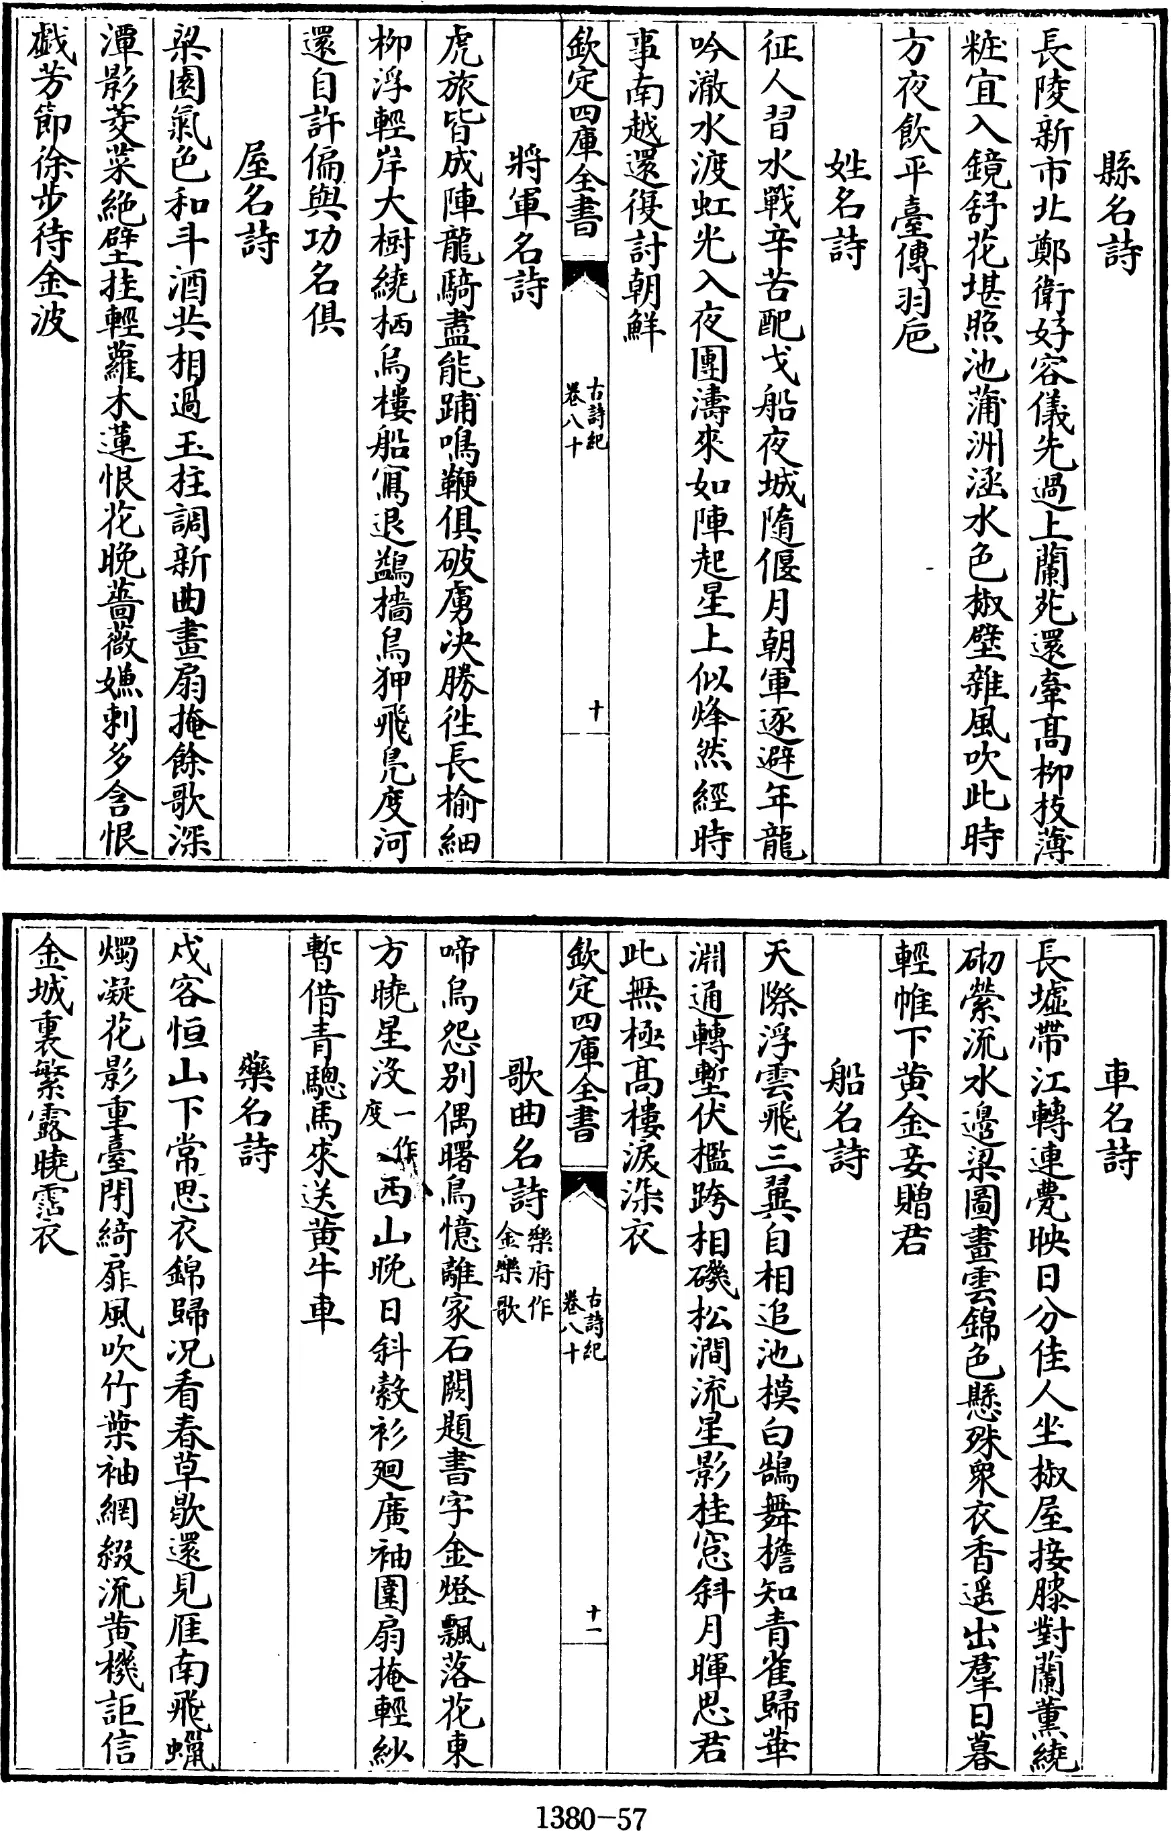 縣名詩
長陵新市北鄭衛好容儀先過上蘭苑還牽髙柳枝薄
粧宜入鏡舒花堪照池蒲洲涵水色椒壁雜風吹此時
方夜飲平臺傳羽巵
姓名詩
征人習水戰辛苦配戈船夜城隨偃月朝軍逐避年龍
吟澈水渡虹光入夜團濤來如陣起星上似烽然經時
事南越還復討朝鮮
欽定四庫全書
古詩紀
卷八十
十
將軍名詩
虎旅皆成陣龍騎盡能踊鳴鞭俱破虜決勝徃長榆細
柳浮輕岸大樹繞栖烏樓船寫退鷁檣烏狎飛鳬度河
還自許偏與功名俱
屋名詩
梁園氣色和斗酒共相過玉柱調新曲畫扇掩餘歌深
潭影菱菜絶壁挂輕蘿木蓮恨花晚薔薇嫌刺多含恨
戱芳節徐步待金波
車名詩
長墟帶江轉連甍映日分佳人坐椒屋接膝對蘭薫繞
砌縈流水邉梁圖畫雲錦色懸殊衆衣香遥出羣日暮
輕帷下黄金妾贈君
船名詩
天際浮雲飛三翼自相追池模白鵠舞檐知青雀歸華
淵通轉塹伏檻跨相磯松澗流星影桂窓斜月暉思君
此無極髙樓淚染衣
欽定四庫全書
古詩紀
卷八十
十一
歌曲名詩 樂府作金樂歌
啼烏怨别偶曙鳥憶離家石闕題書字金燈飄落花東
方曉星没 一作度 西山晩日斜縠衫廻廣袖團扇掩輕紗
暫借青驄馬來送黄牛車
藥名詩
戍客恒山下常思衣錦歸况看春草歇還見雁南飛蠟
燭凝花影重臺閉綺扉風吹竹葉袖網綴流黄機詎信
金城裏繁露曉霑衣
1380-57